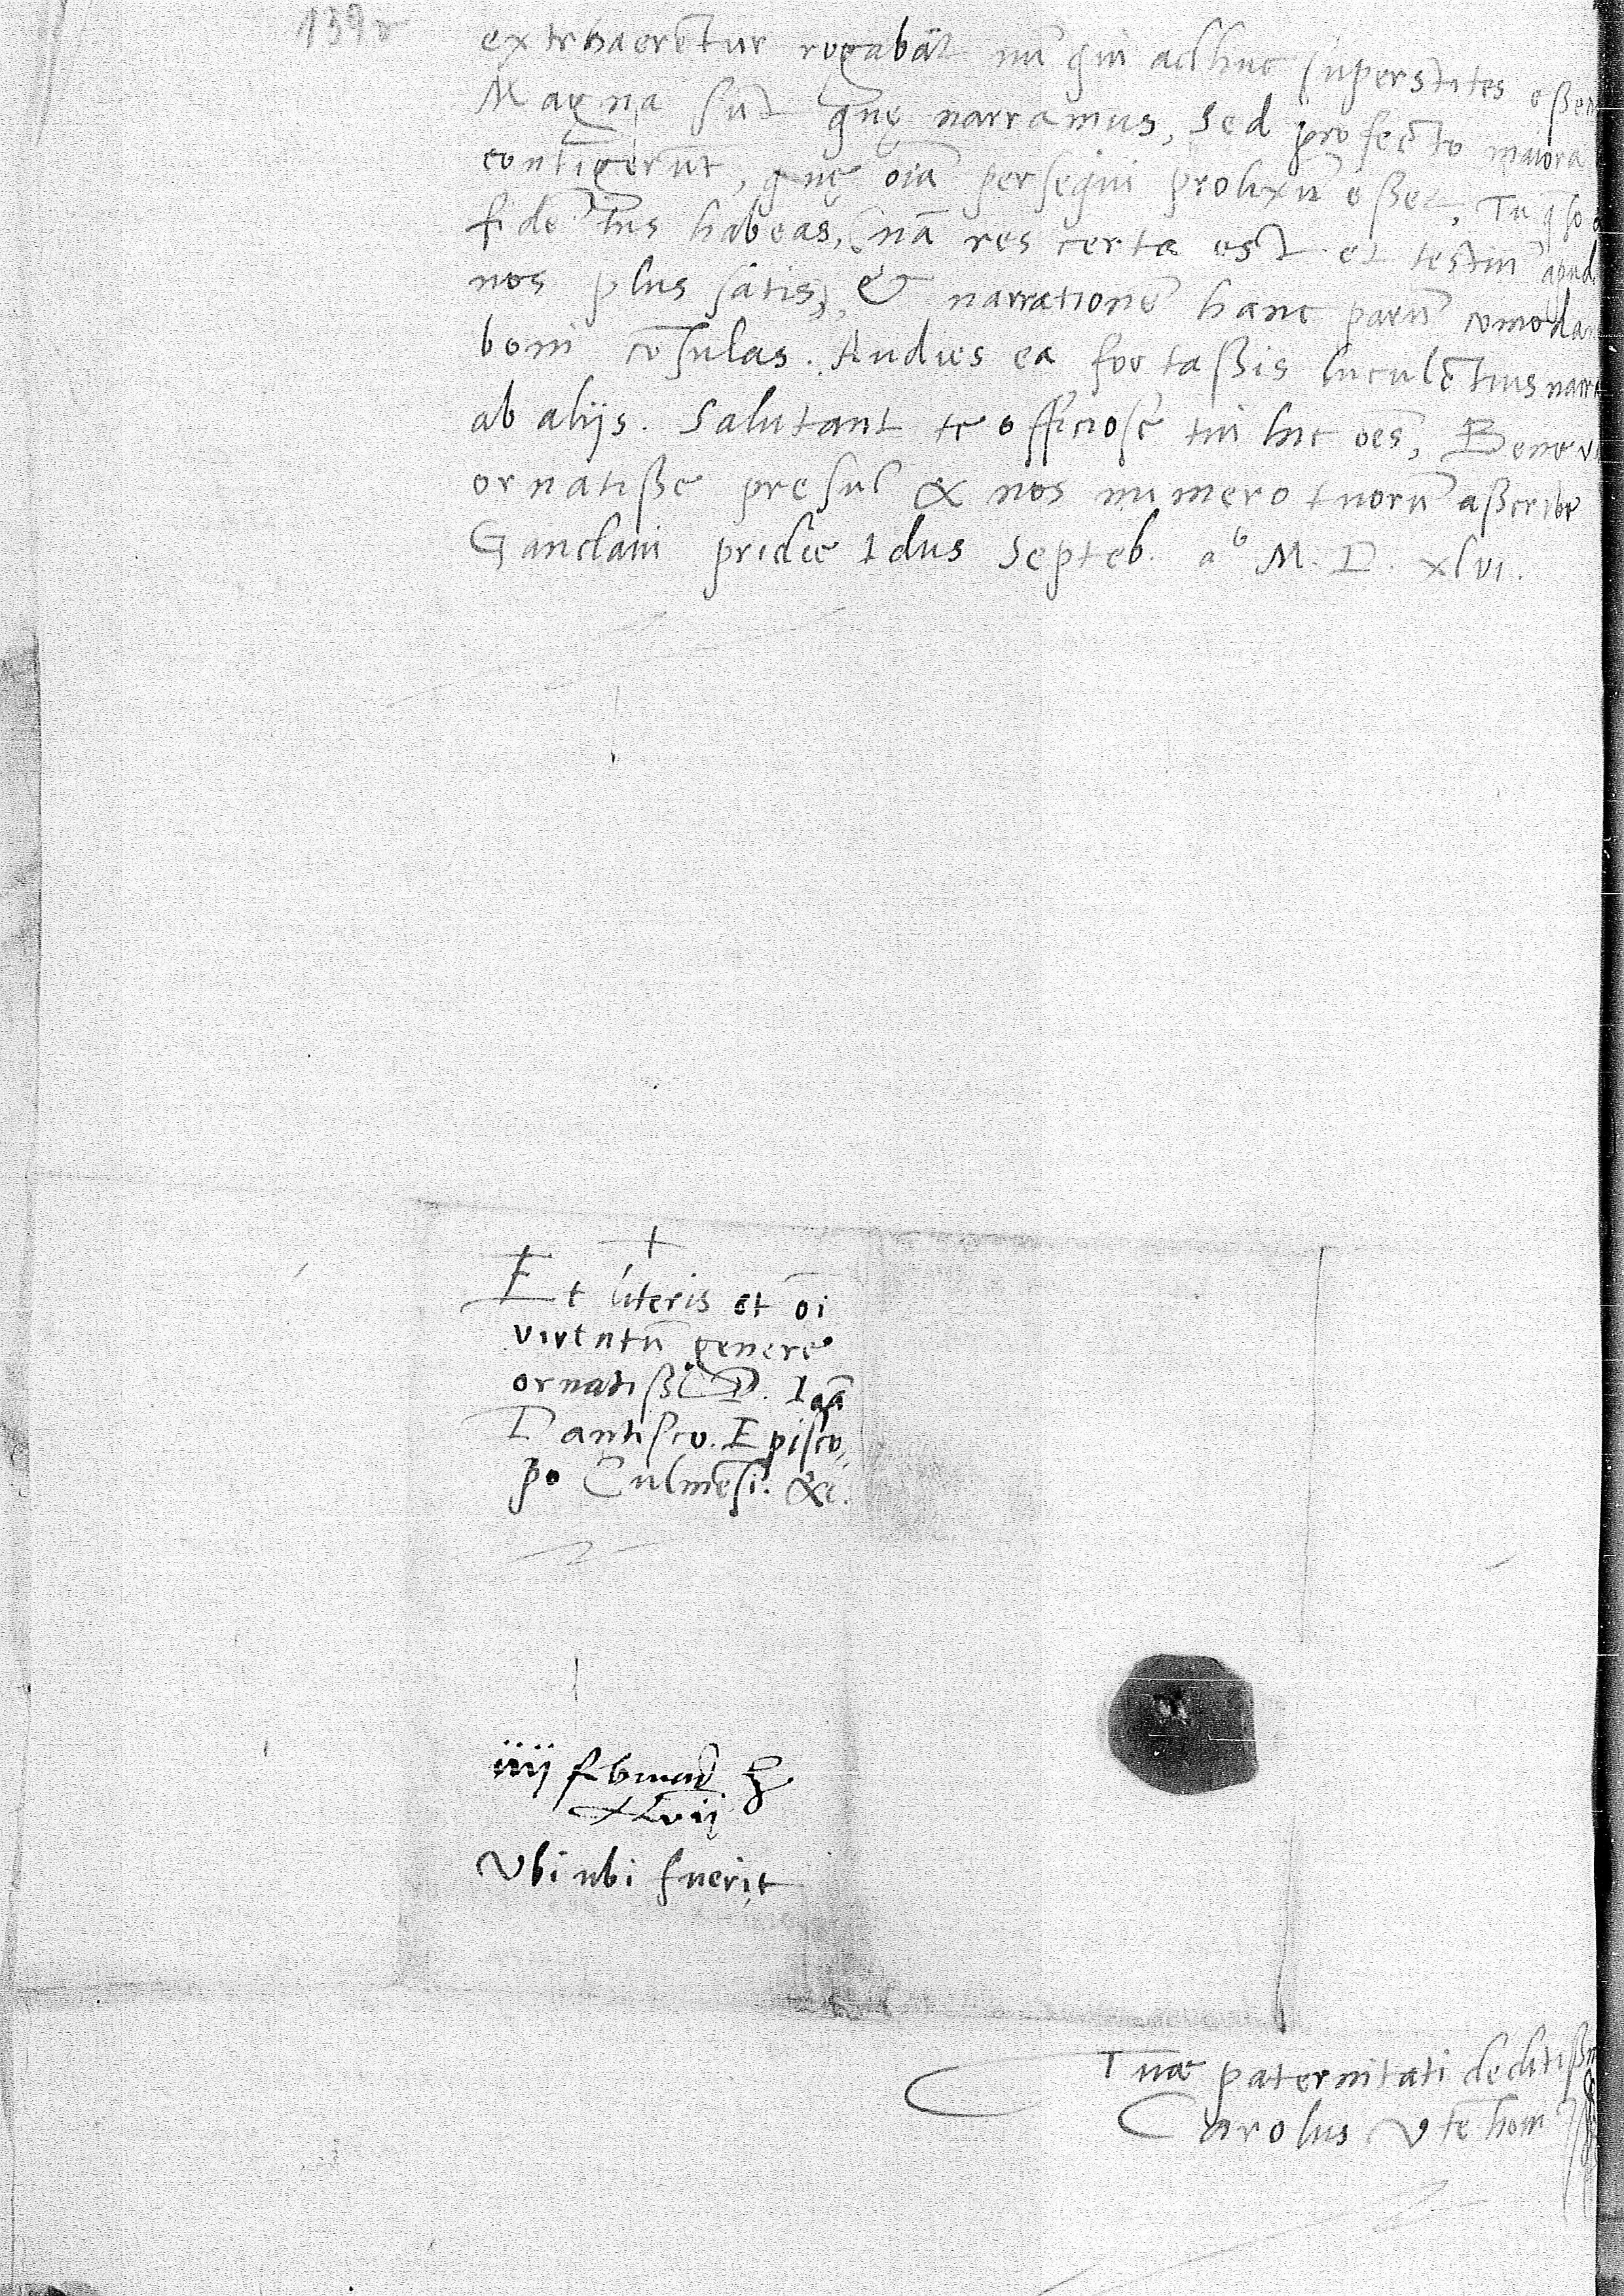 139r
extrhaerēt​ur rogabāt nū qui adhuc superstites eßen
Magna sūt quę narramus, Sed profecto maiora
contigerūt, quę oīa persequi prolixū eßet, Tu qso
fidē his habeas, nā res certa est et testiū apud
nos plus satis, & narrationē hanc parū comoda
boni cōsulas. Audies ea fortaßis luculētius narra
ab alijs. Salutant te officiosè tui hic oēs, Bene v
ornatiße presul & nos numero tuorū aßcribe
Gandaui pridie Idus Septeb. a° M. D. xlvi.
+
Et literis et oī
virtutū genere
ornatiß D. Ioā
Dantisco. Episco
po Culmēsi. &c.
iiij
xlvij
Vbi ubi fuerit
Tuae paternitati deditiß
Carolus Vtēhoui